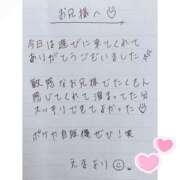 お兄様へ
今日は遊びに来てくれて
ありがとうございました
敏感なお兄様でたくさん
感じてくれて溜まってた分
スッキリできてよかった
ポケや自販機ぜひ!笑
えるより